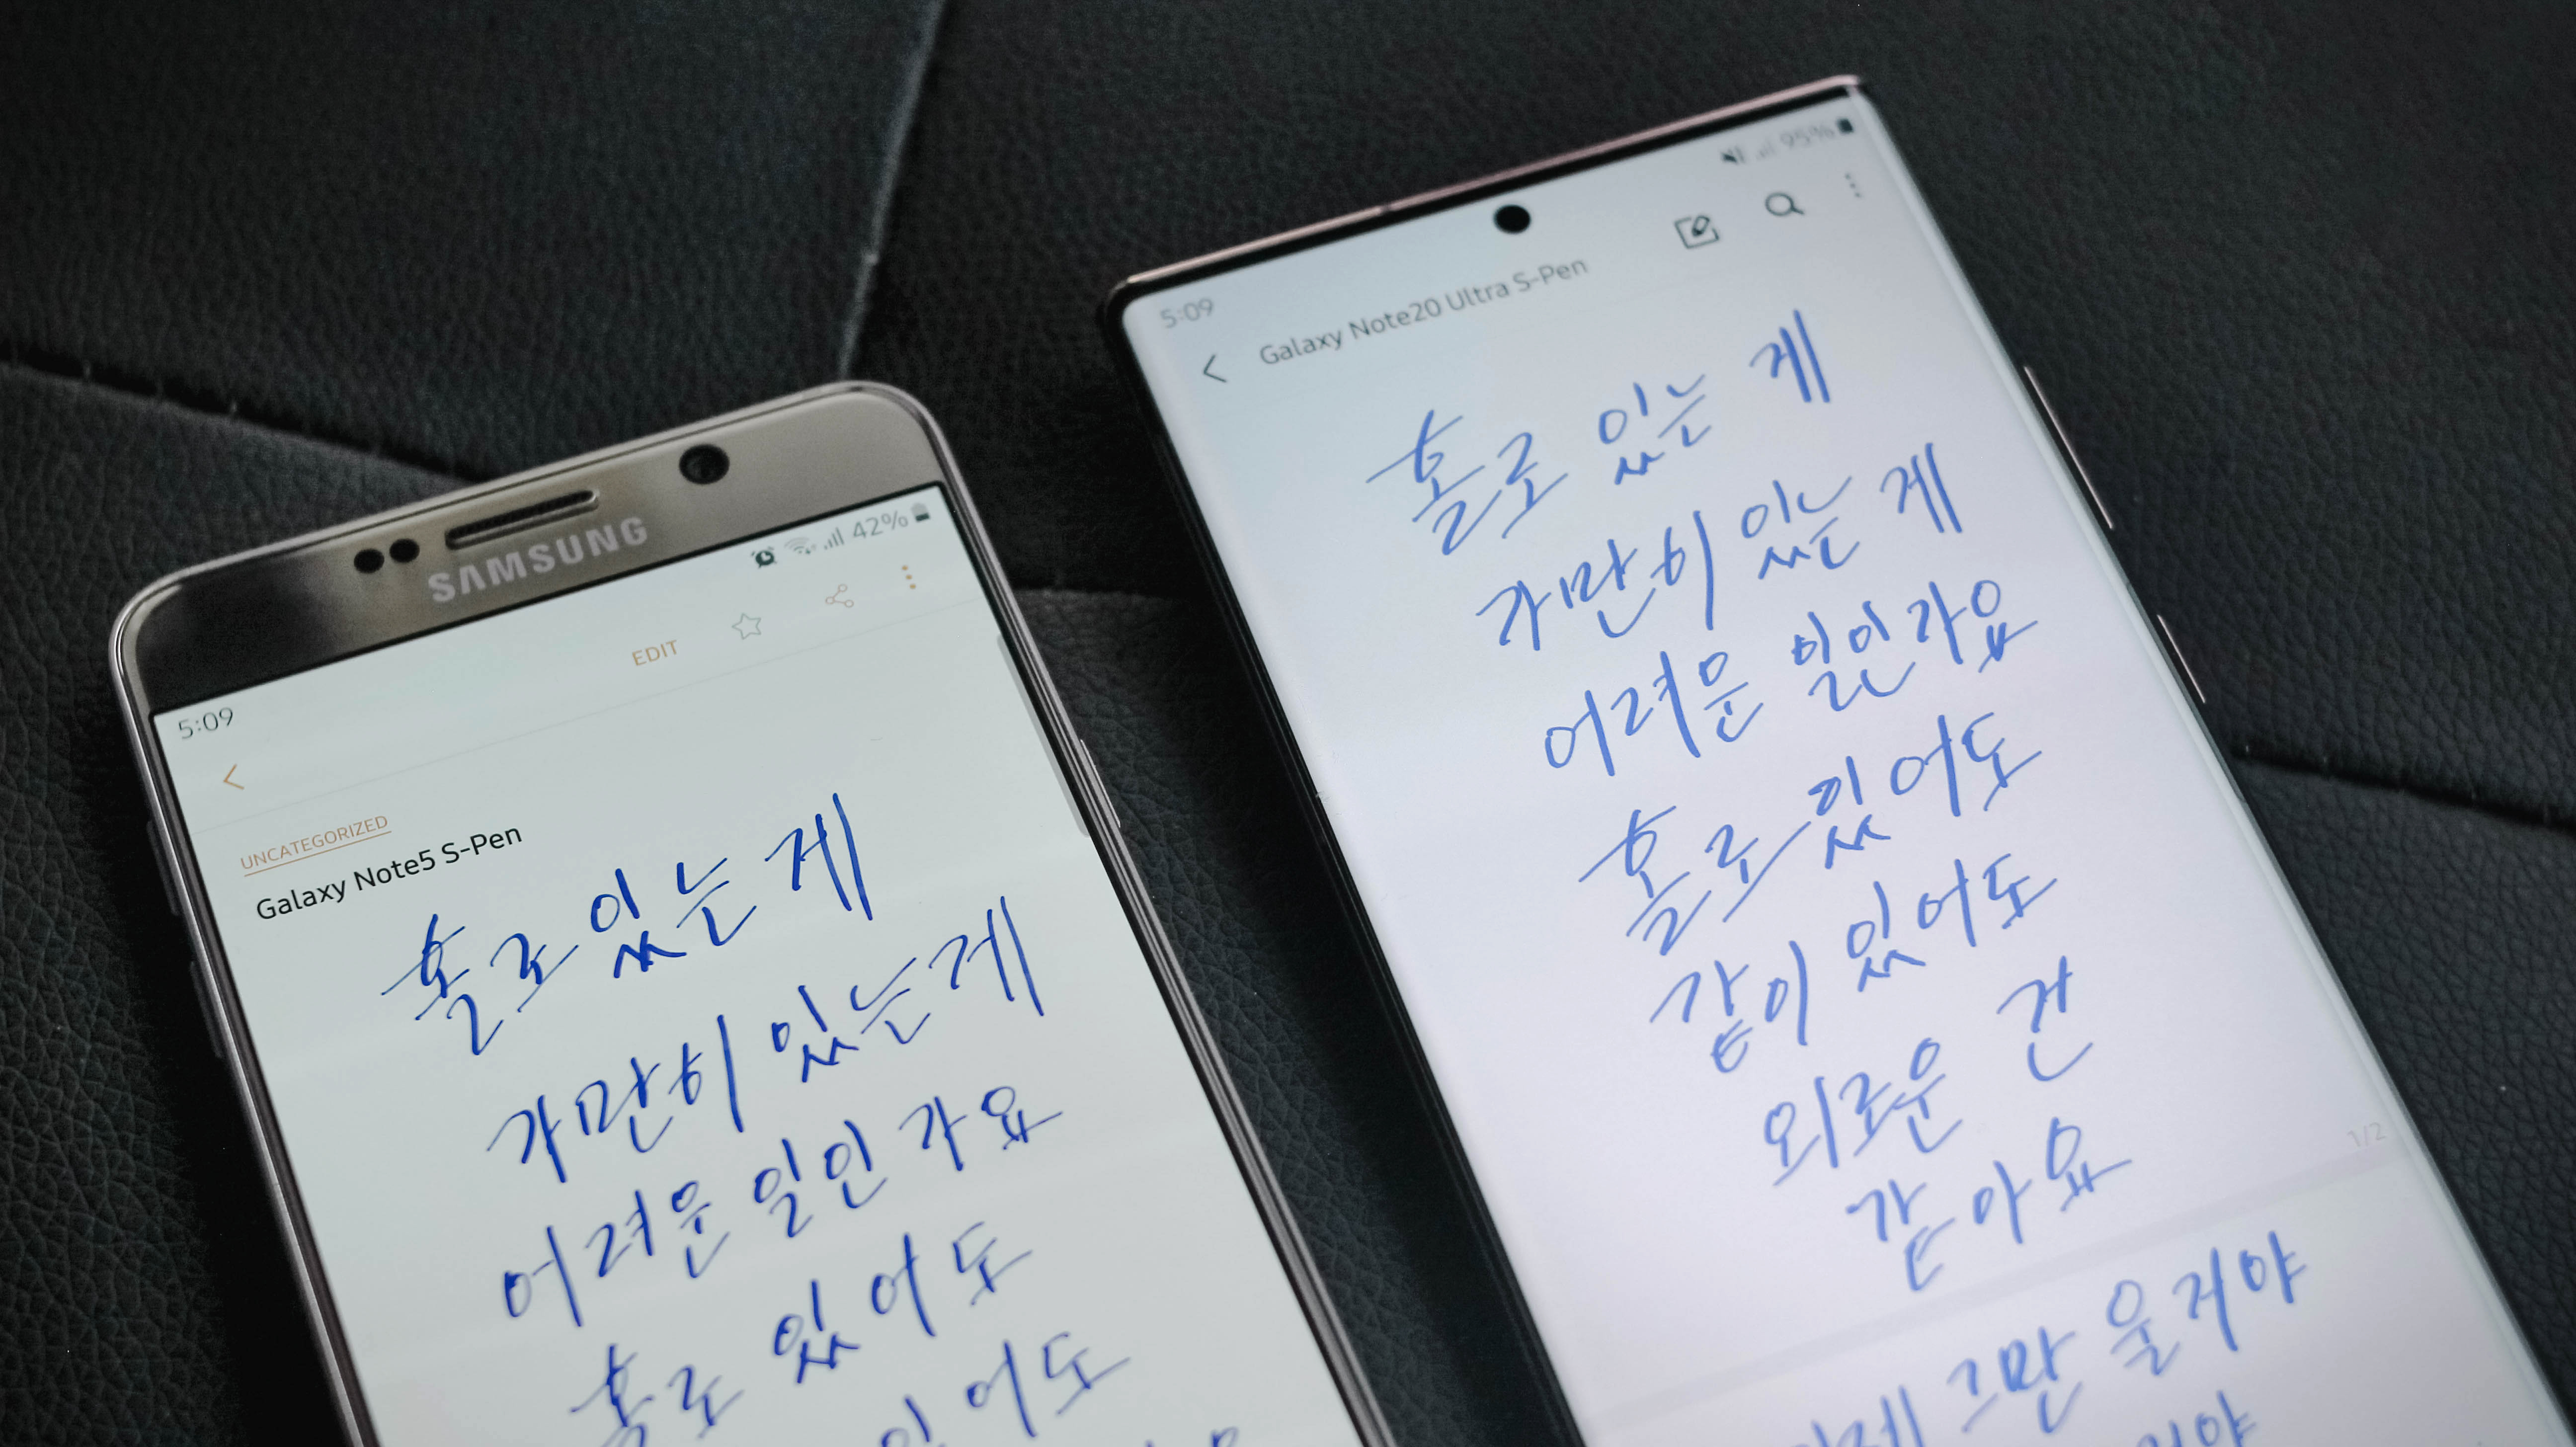 SAMSUNG
42%
5:09
EDIT
UNCATEGORIZED
Galaxy Note5 S-Pen
홀로 있는 게
가만히 있는 게
어려운 일인가요
홀로 있어도
있어도
95%
5:09
Galaxy Note20 Ultra S-Pen
홀로 있는 게
가만히 있는 게
어려운 일인가요
홀로 있어도
같이 있어도
외로운 건
같아요
1/2
이제 그만 울거야
거야